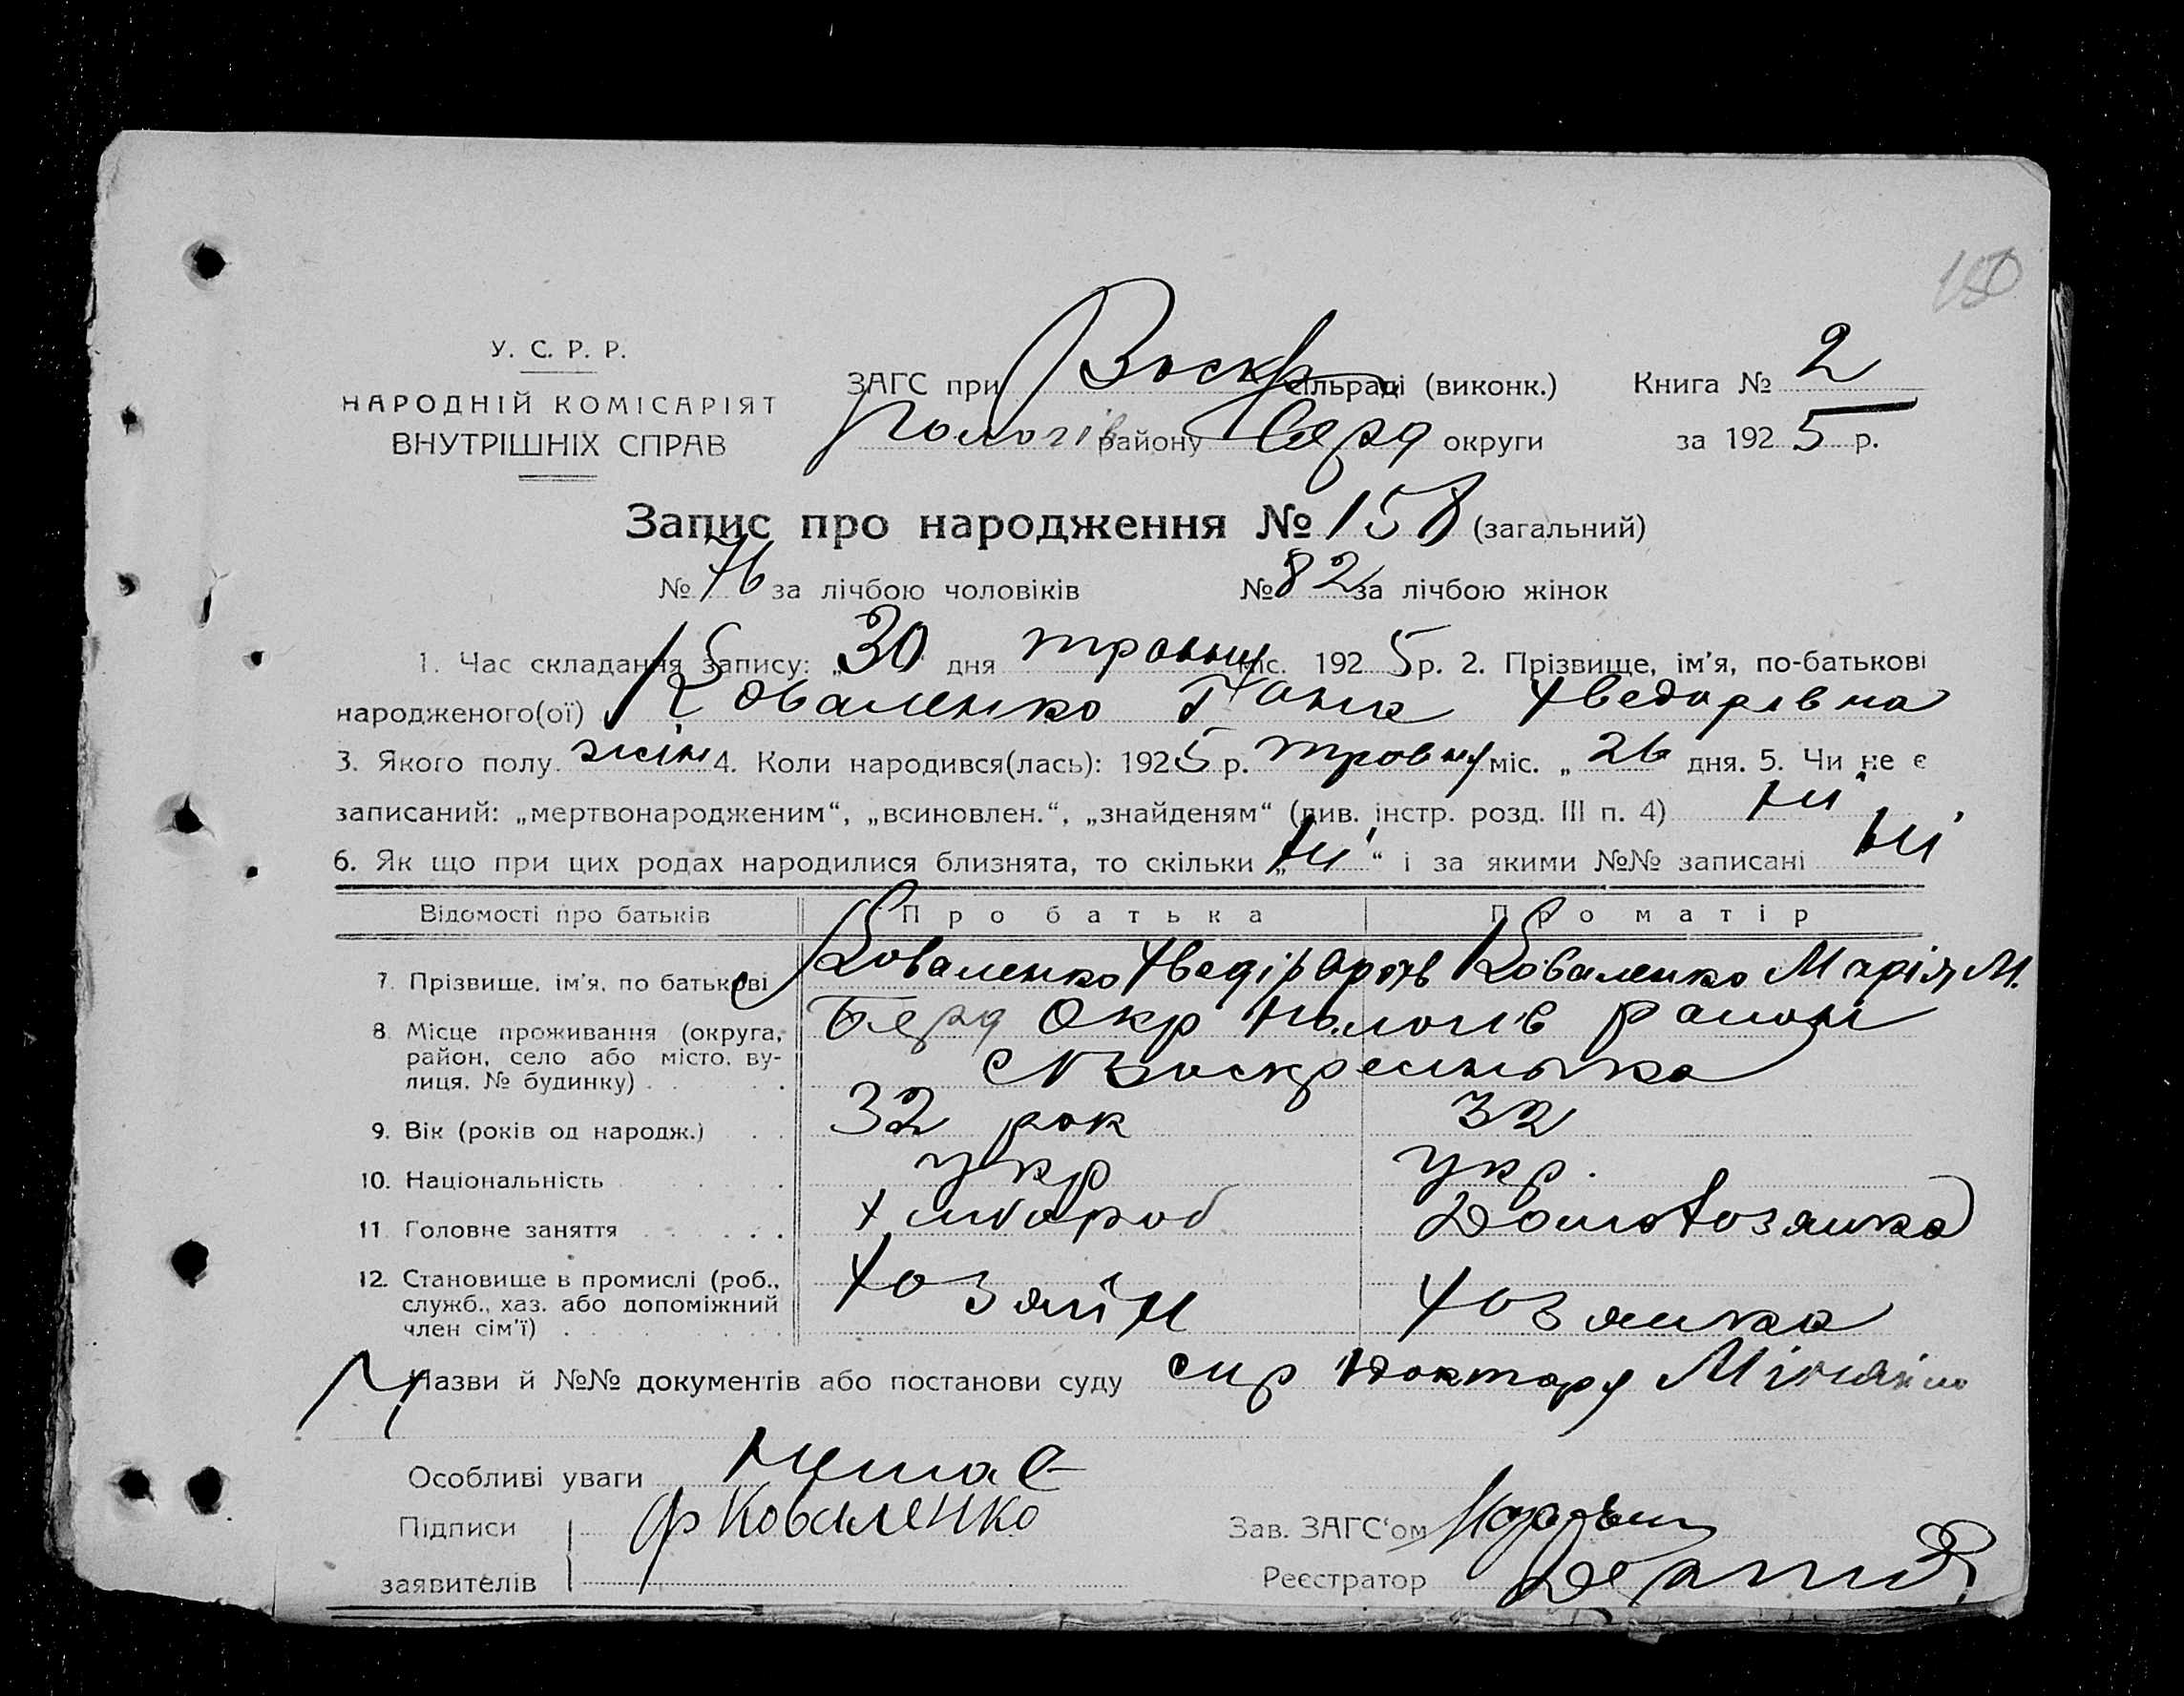 150
У. С. Р. Р.
НАРОДНІЙ КОМІСАРІЯТ
ВНУТРІШНІХ СПРАВ
ЗАГС при Воскр сільраді (виконк.) Книга № 2
Пологів району Берд округи за 1925 р.
Запис про народження № 158 (загальний)
№ 76 за лічбою чоловіків № 82 за лічбою жінок
1. Час складання запису: „30 дня травня міс. 1925 р. 2. Прізвище, ім’я, по-батькові
народженого(ої) Коваленко Ганна Хведорівна
3. Якого полу жін 4. Коли народився(лась): 1925 р. травня міс. „26 дня. 5. Чи не є
записаний: „мертвонародженим“, „всиновлен.“, „знайденям“ (див. інстр. розд. III п. 4) ні
6. Як що при цих родах народилися близнята, то скільки „ні“ і за якими №№ записані ні
Відомості про батьків Про батька Про матір
7. Прізвище, ім’я, по батькові Коваленко Хведір Коваленко Марія М.
8 Місце проживання (округа, Берд Окр Пологів район
район, село або місто, ву- с Воскресенька
лиця, № будинку)
9. Вік (років од народж.) 32 рок 32
10. Національність укр укр.
11 Головне заняття хлібороб Домохозяика
12. Становище в промислі (роб., Хозяїн Хозяика
служб., хаз. або допоміжний
член сім’ї)
Назви й №№ документів або постанови суду
Особливі уваги немає
Підписи Ф Коваленко Зав. ЗАГС‘ом
заявителів Реєстратор